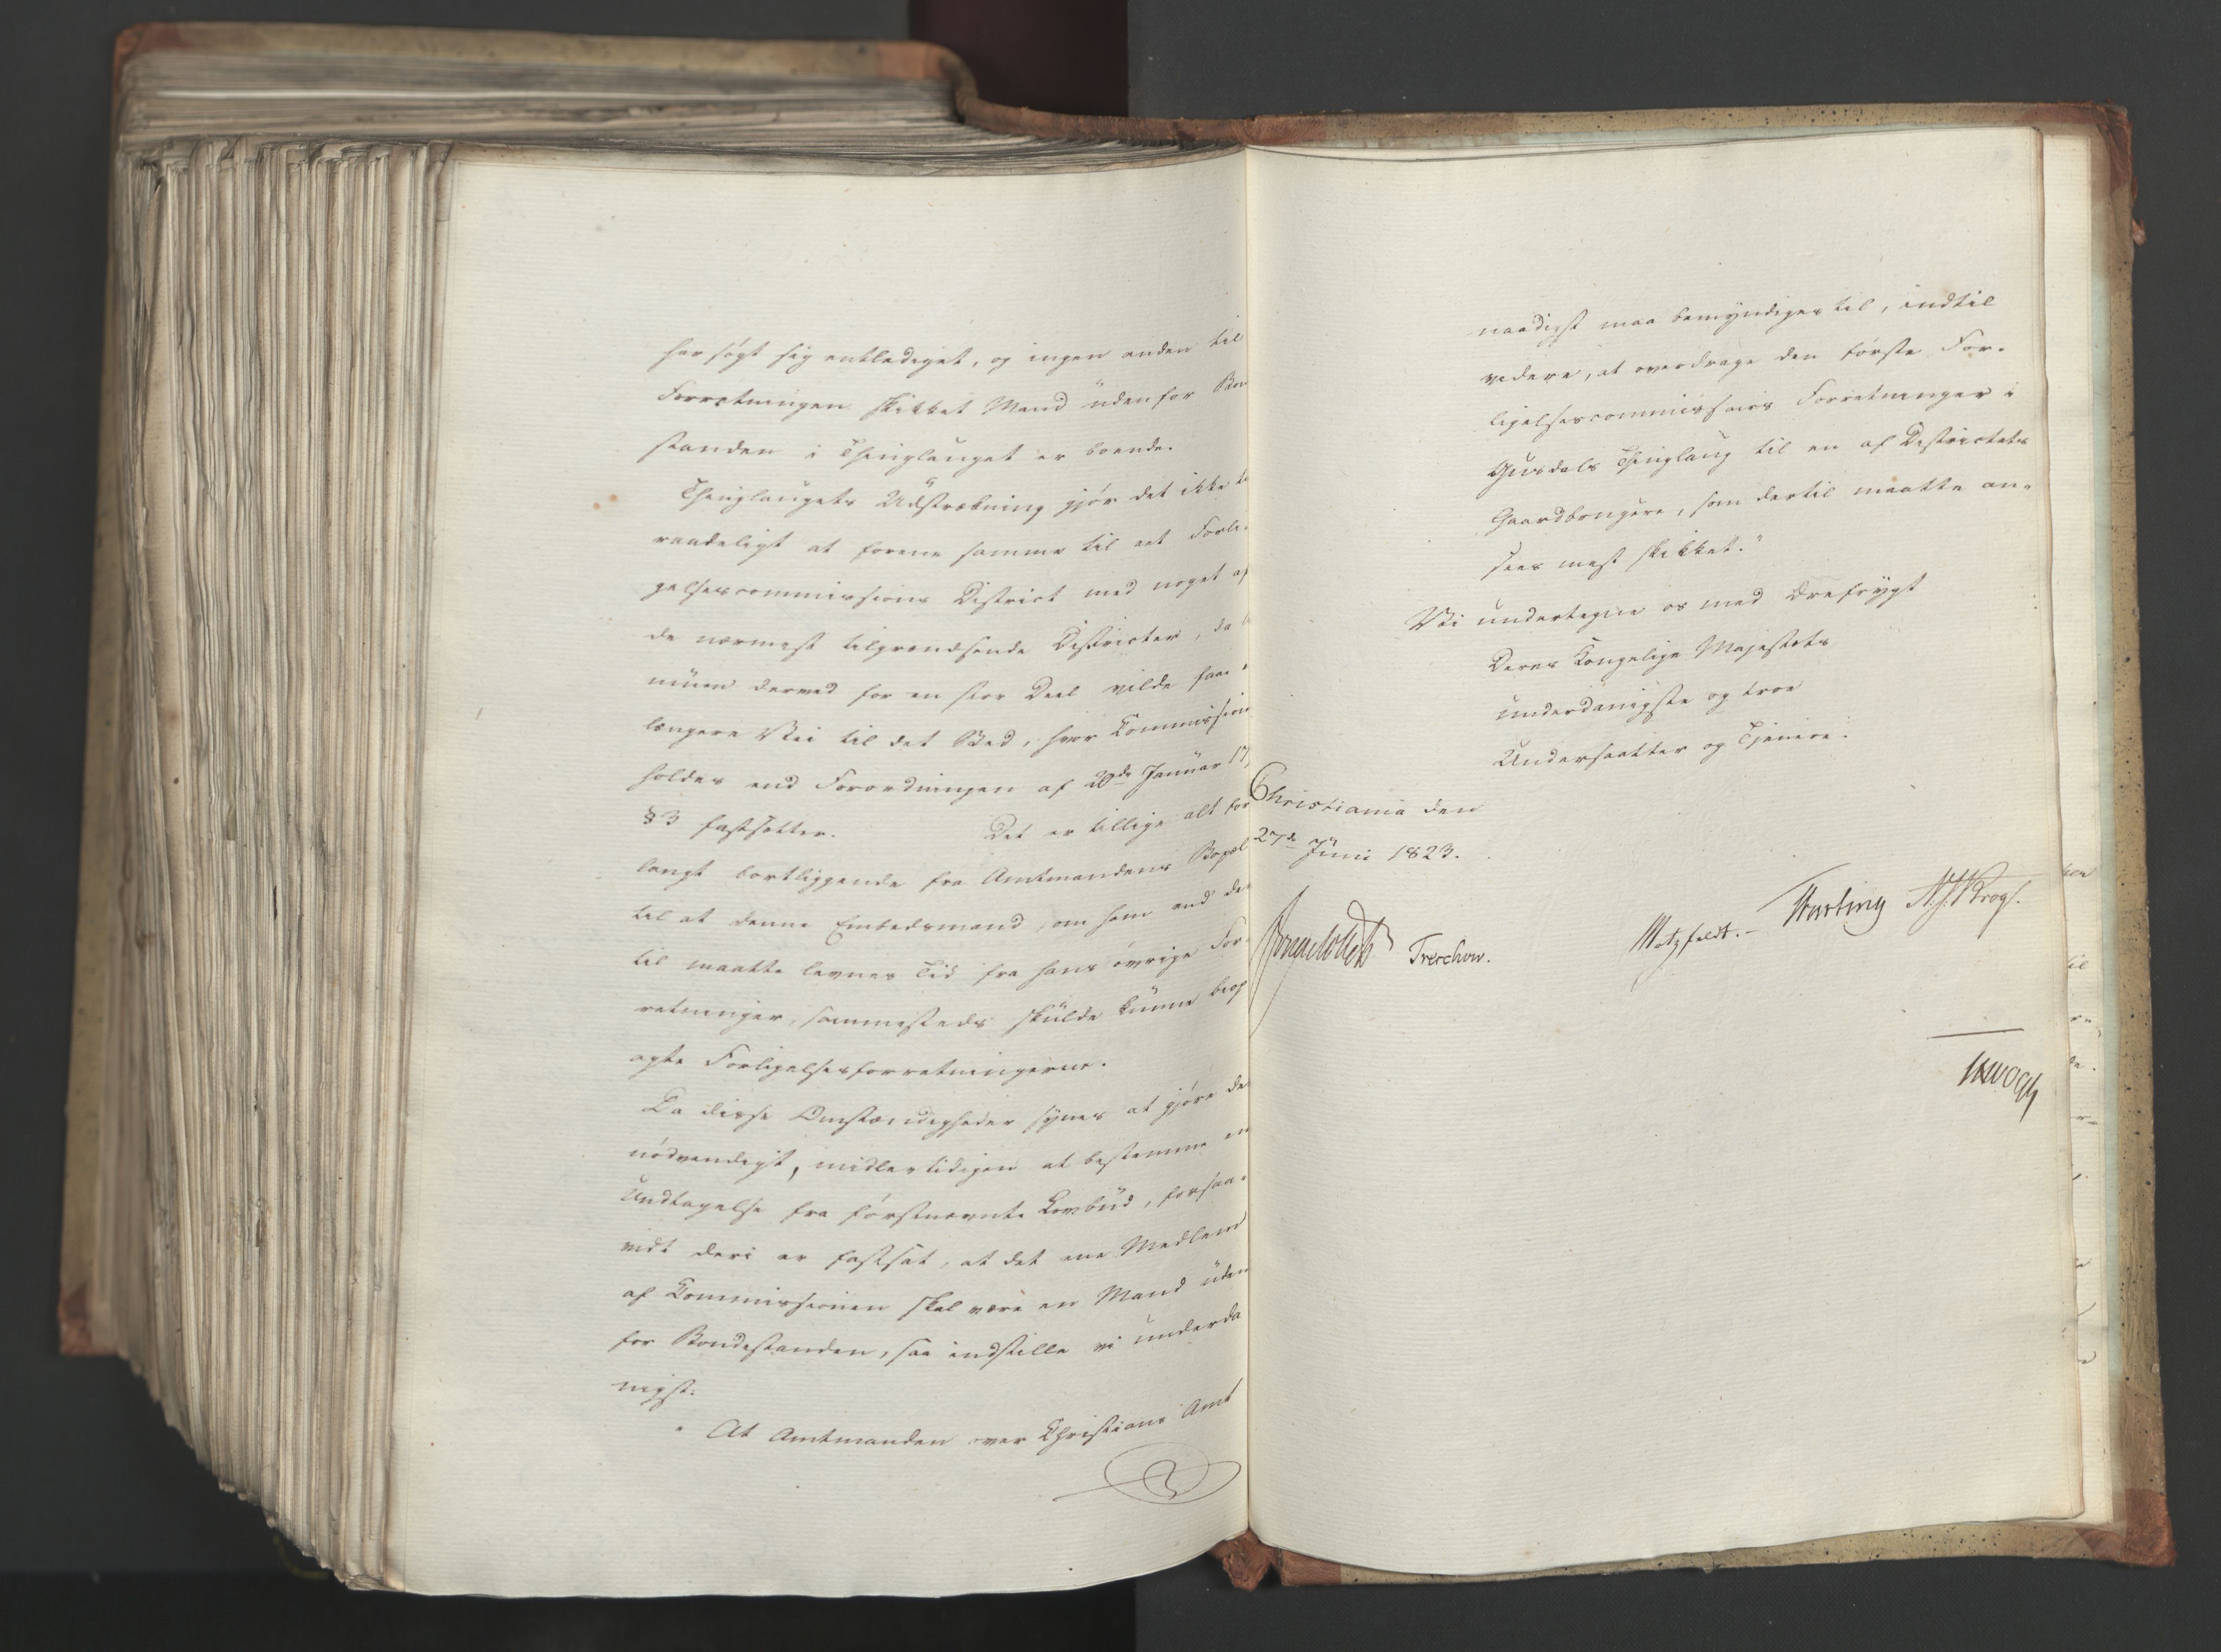 har søgt sig entlediget, og ingen anden til
Forretningen skikket Mand udenfor Bon
standen i Thinglauget er boende.
Thinglaugets Udstrækning gjør det ikke til
raadeligt at forene samme til eet Forli-
gelsescommissions District med noget af
de nærmest tilgrændsende Districter, da
nuen derved for en stor Deel vilde faae
længere Vei til det Sted, hvor Commission
holdes end Forordningen af 20de Januar 17
§ 3 fastsætter. Det er tillige alt for
langt bortliggende fra Amtmandens Bopæl
til at denne Embedsmand, om ham end der
til maatte levnes Tid fra hans øvrige For-
retninger, sammesteds skulde kunne besøg
Forligelsesforretningerne.
Da disse Omstændigheder synes at gjøre det
nødvendigt, midlertidigen at bestemme en
Undtagelse fra førstnævnte Lovbud, forsaa-
vidt deri er fastsat, at det ene Medlem
af Commissionen skal være en Mand uden
for Bondestanden, saa indstille vi underda
nigst:
"At Amtmanden over Christians Amt
naadigst maa bemyndiges til, indtil
videre, at overdrage den første For-
ligelsescommissairs Forretninger i
Gusdals Thinglaug til en af Districtets
Gaardbrugere, som dertil maatte an-
sees mest skikket."
Vi undertegne os med Ærefrygt
Deres Kongelige Majestæts
underdanigste og troe
Undersaatter og Tjenere.
Christiania den
27de Juni 1823.
Treschow.
Motzfeldt.
N. J. Krogh.